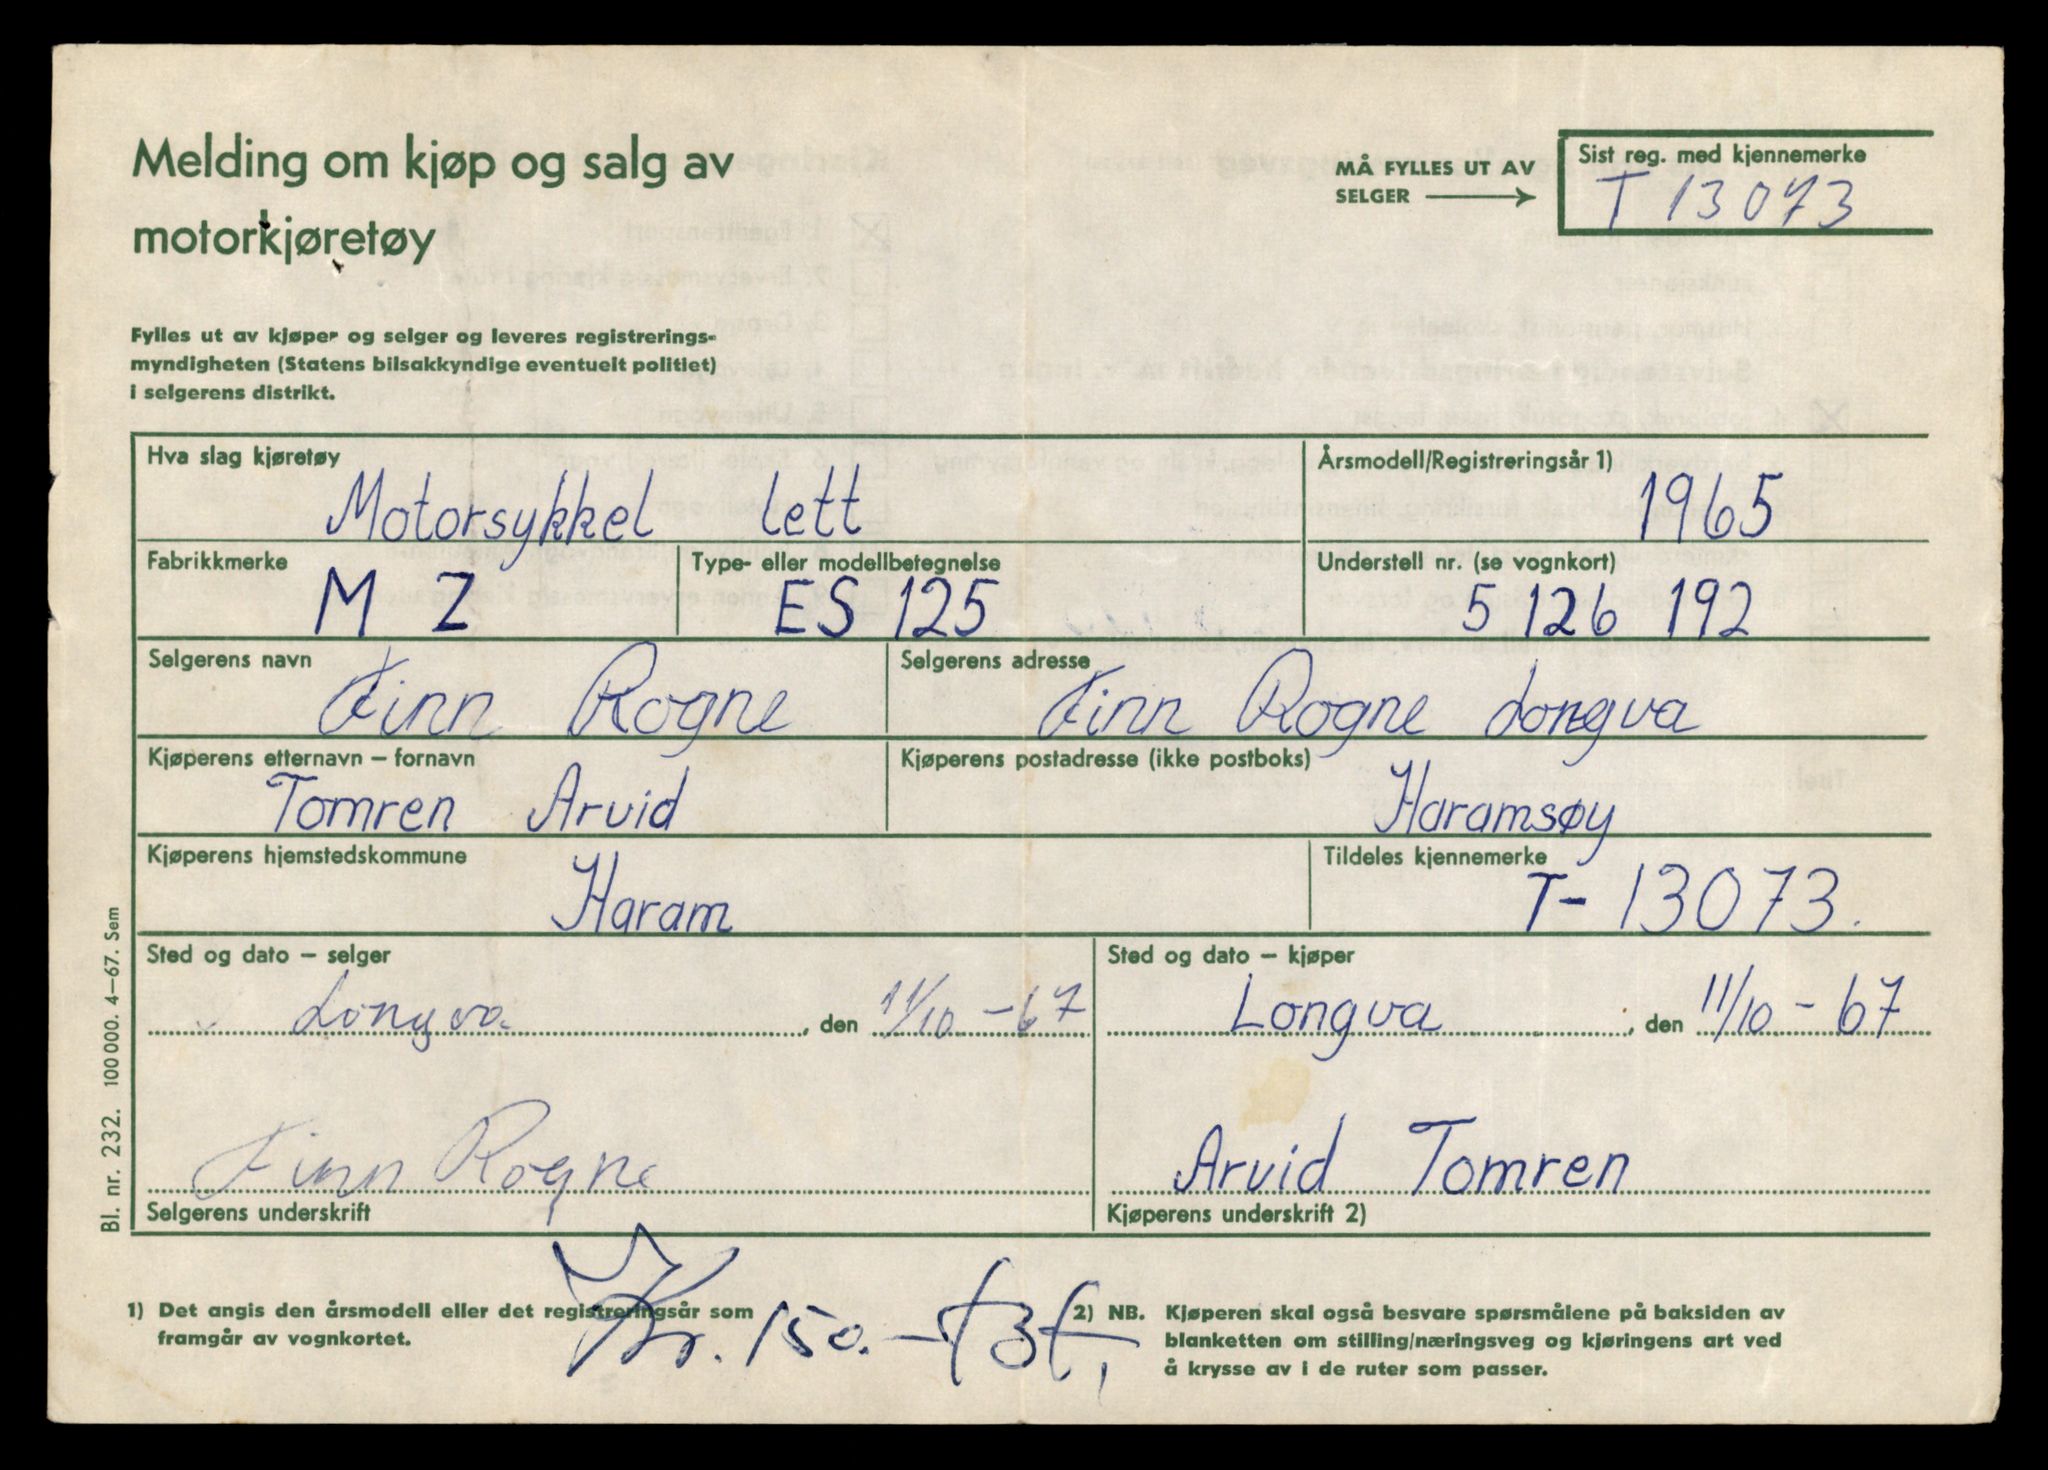 Melding om kjøp og salg av
motorkjøretøy
MÅ FYLLES UT AV
SELGER
Sist reg. med kjennemerke
T 13073
Fylles ut av kjøper og selger og leveres registrerings-
myndigheten (Statens bilsakkyndige eventuelt politiet)
i selgerens distrikt.
Hva slag kjøretøy
Motorsykkel lett
Årsmodell/Registreringsår 1)
1965
Fabrikkmerke
M Z
Type- eller modellbetegnelse
ES 125
Understell nr. (se vognkort)
5 126 192
Selgerens navn
Finn Rogne
Selgerens adresse
Finn Rogne Longva
Kjøperens etternavn – fornavn
Tomren Arvid
Kjøperens postadresse (ikke postboks)
Haramsøy
Kjøperens hjemstedskommune
Haram
Tildeles kjennemerke
T- 13073.
Sted og dato – selger
Longva, den 11/10 - 67
Sted og dato – kjøper
Longva, den 11/10 - 67
Finn Rogne
Selgerens underskrift
Arvid Tomren
Kjøperens underskrift 2)
Bl. nr. 232. 100 000. 4–67. Sem
Kr. 150.-
1) Det angis den årsmodell eller det registreringsår som
framgår av vognkortet.
2) NB. Kjøperen skal også besvare spørsmålene på baksiden av
blanketten om stilling/næringsveg og kjøringens art ved
å krysse av i de ruter som passer.